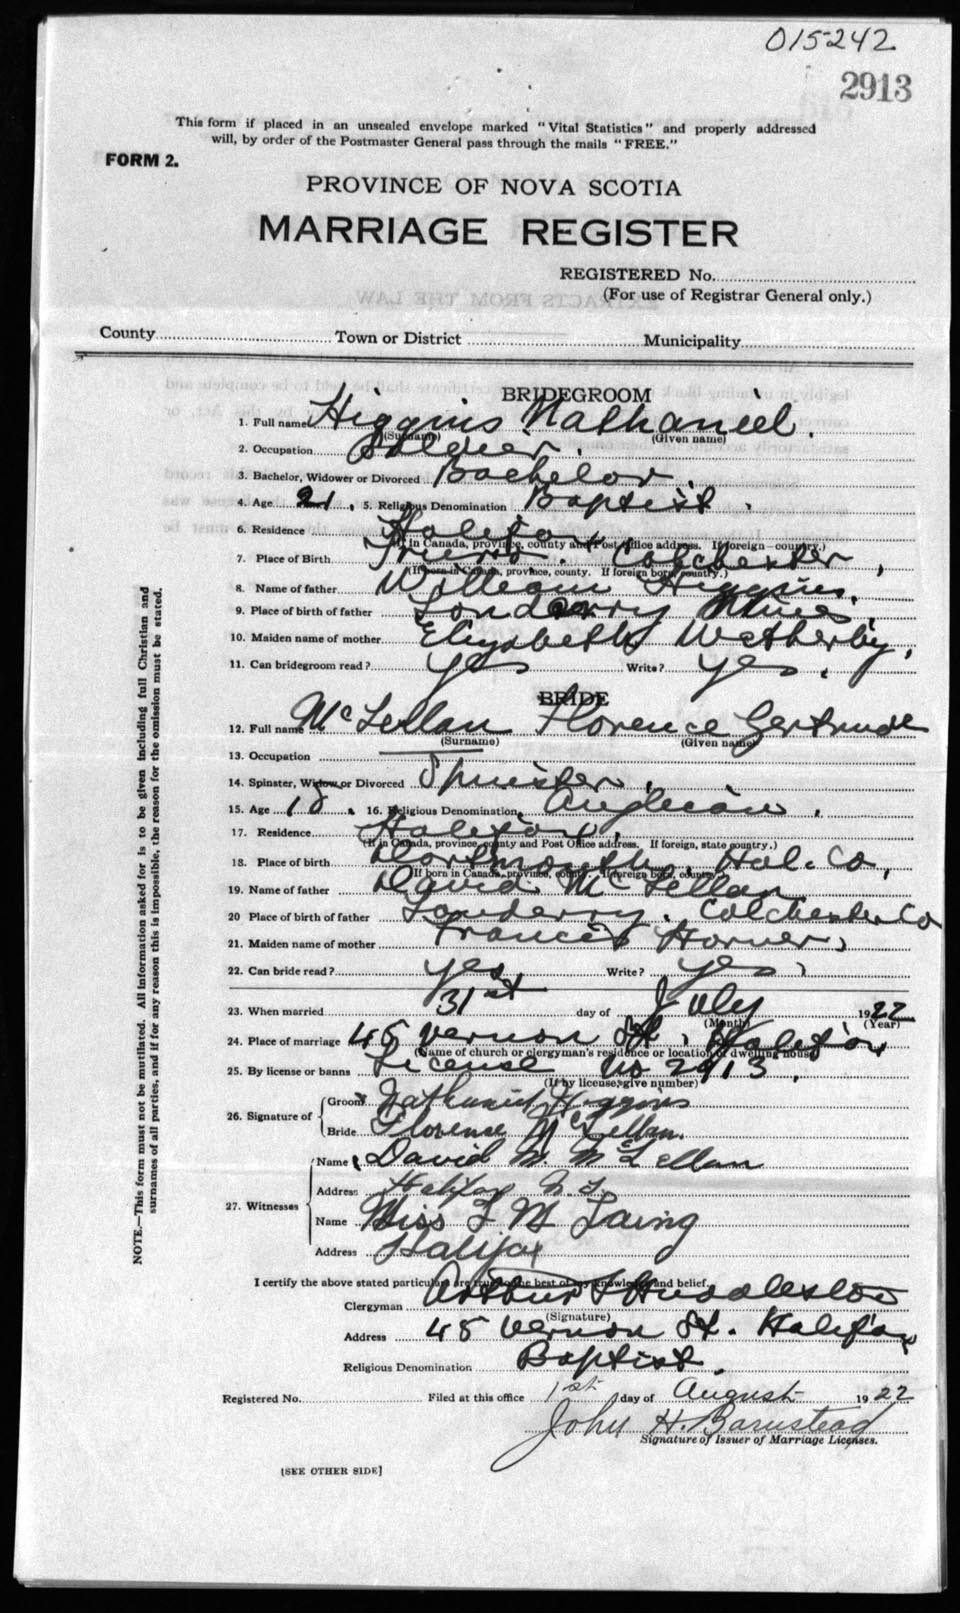 015242
2913
This form if placed in an unsealed envelope marked "Vital Statistics" and properly addressed
will, by order of the Postmaster General pass through the mails "FREE."
FORM 2.
PROVINCE OF NOVA SCOTIA
MARRIAGE REGISTER
REGISTERED No.
(For use of Registrar General only.)
County Town or District Municipality
BRIDEGROOM
1. Full name Higgins Nathaniel.
(Surname) (Given name)
2. Occupation Soldier.
3. Bachelor, Widower or Divorced Bachelor.
4. Age 21. 5. Religious Denomination Baptist.
6. Residence Halifax
(If in Canada, province, county and Post Office address. If foreign country.)
7. Place of Birth Truro. Colchester,
(If born in Canada, province, county. If foreign born country.)
8. Name of father William Higgins.
9. Place of birth of father Londerry Mines
10. Maiden name of mother Elizabeth Wetherby,
11. Can bridegroom read? yes Write? yes.
BRIDE
12. Full name McLellan Florence Gertrude
(Surname) (Given name)
13. Occupation
14. Spinster, Widow or Divorced Spinster.
15. Age 18. 16. Religious Denomination Anglican.
17. Residence Halifax,
(If in Canada, province, county and Post Office address. If foreign, state country.)
18. Place of birth Dartmouth, Hal. Co,
(If born in Canada, province, county. If foreign born, country.)
19. Name of father David McLellan
20 Place of birth of father Londerry, Colchester Co
21. Maiden name of mother Francis Horner,
22. Can bride read? yes, Write? yes,
23. When married 31st day of July 1922
(Month) (Year)
24. Place of marriage 45 Vernon St, Halifax
(Name of church or clergyman's residence or location of dwelling house)
25. By license or banns License No 2913,
(If by license, give number)
26. Signature of
Groom Nathaniel Higgins
Bride Florence McLellan.
27. Witnesses
Name David M McLellan
Address Halifax N.S.
Name Miss F M Laing
Address Halifax
I certify the above stated particulars are true to the best of my knowledge and belief.
Clergyman Arthur Huddleston
(Signature)
Address 45 Vernon St. Halifax
Religious Denomination Baptist.
Registered No. Filed at this office 1st day of August 1922
John H. Barnstead
Signature of Issuer of Marriage Licenses.
[SEE OTHER SIDE]
NOTE.—This form must not be mutilated. All information asked for is to be given including full Christian and
surnames of all parties, and if for any reason this is impossible, the reason for the omission must be stated.